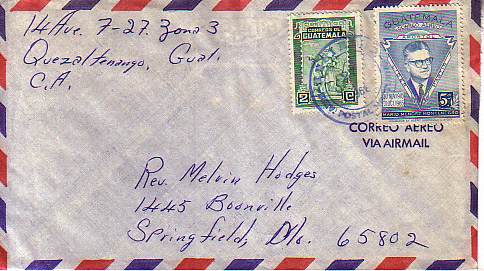 14 Ave. 7-27. Zona 3
Quezaltenango, Guat.
C.A.
CORREOS DE
GUATEMALA
2 2
GUATEMALA
CORREO AEREO
5
MARIO MENDEZ MONTENEGRO
POSTAL
CORREO AEREO
VIA AIRMAIL
Rev. Melvin Hodges
1445 Boonville
Springfield, Mo. 65802